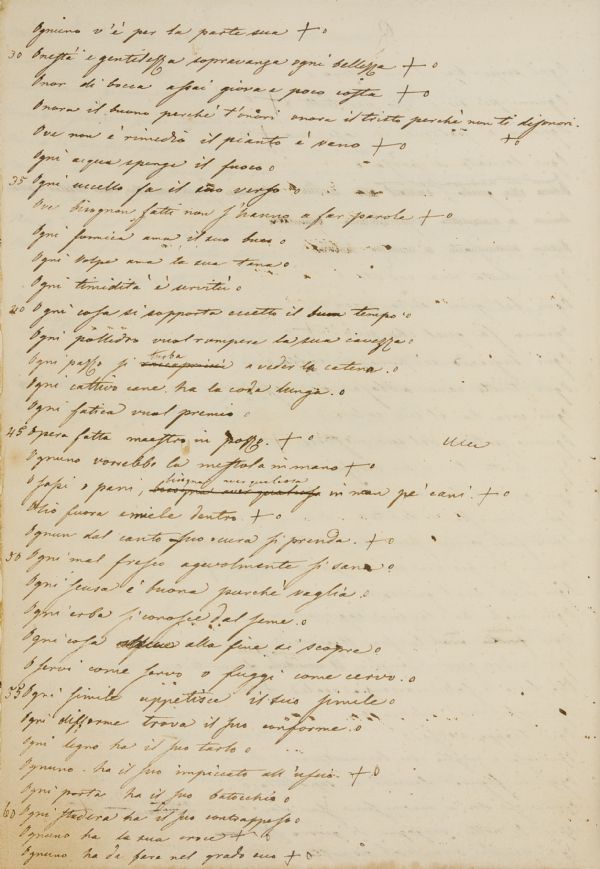 Ognuno v'è per la parte sua + o
30 Onestà e gentilezza sopravanza ogni bellezza + o
Onor di bocca assai giova e poco costa + o
Onora il buono perchè t'onori onora il tristo perchè non ti disonori.
Ove non è rimedio il pianto è vano + o + o
Ogni acqua spenge il fuoco o
35 Ogni uccello fa il suo verso o
Ove bisognan fatti non s'hanno a far parole + o
Ogni formica ama il suo buco o
Ogni volpe ama la sua tana o
Ogni timidità è servitù o
40 Ogni cosa si sopporta eccetto il buon tempo o
Ogni polledro vuol rompere la sua cavezza o
Ogni pazzo si turba a veder la catena. o
Ogni cattivo cane ha la coda lunga. o
Ogni fatica vuol premio o
45 Opera fatta maestro in pozzo. + o
Ognuno vorrebbe la mestola in mano + o
O sassi o pani, bisogna aver qualcosa in man pe' cani. + o
Olio fuora e miele dentro + o
Ognun dal canto suo cura si prenda. + o
50 Ogni mal fresco agevolmente si sana o
Ogni scusa è buona purchè vaglia. o
Ogni erba si conosce dal seme. o
Ogni cosa alla fine si scopre o
O servi come servo o fuggi come cervo. o
55 Ogni simile appetisce il suo simile o
Ogni difforme trova il suo conforme. o
Ogni legno ha il suo tarlo o
Ognuno ha il suo impiccato all'uscio. + o
Ogni porta ha il suo batocchio o
60 Ogni stadera ha il suo contrappeso o
Ognuno ha la sua croce + o
Ognuno ha da fare nel grado suo + o